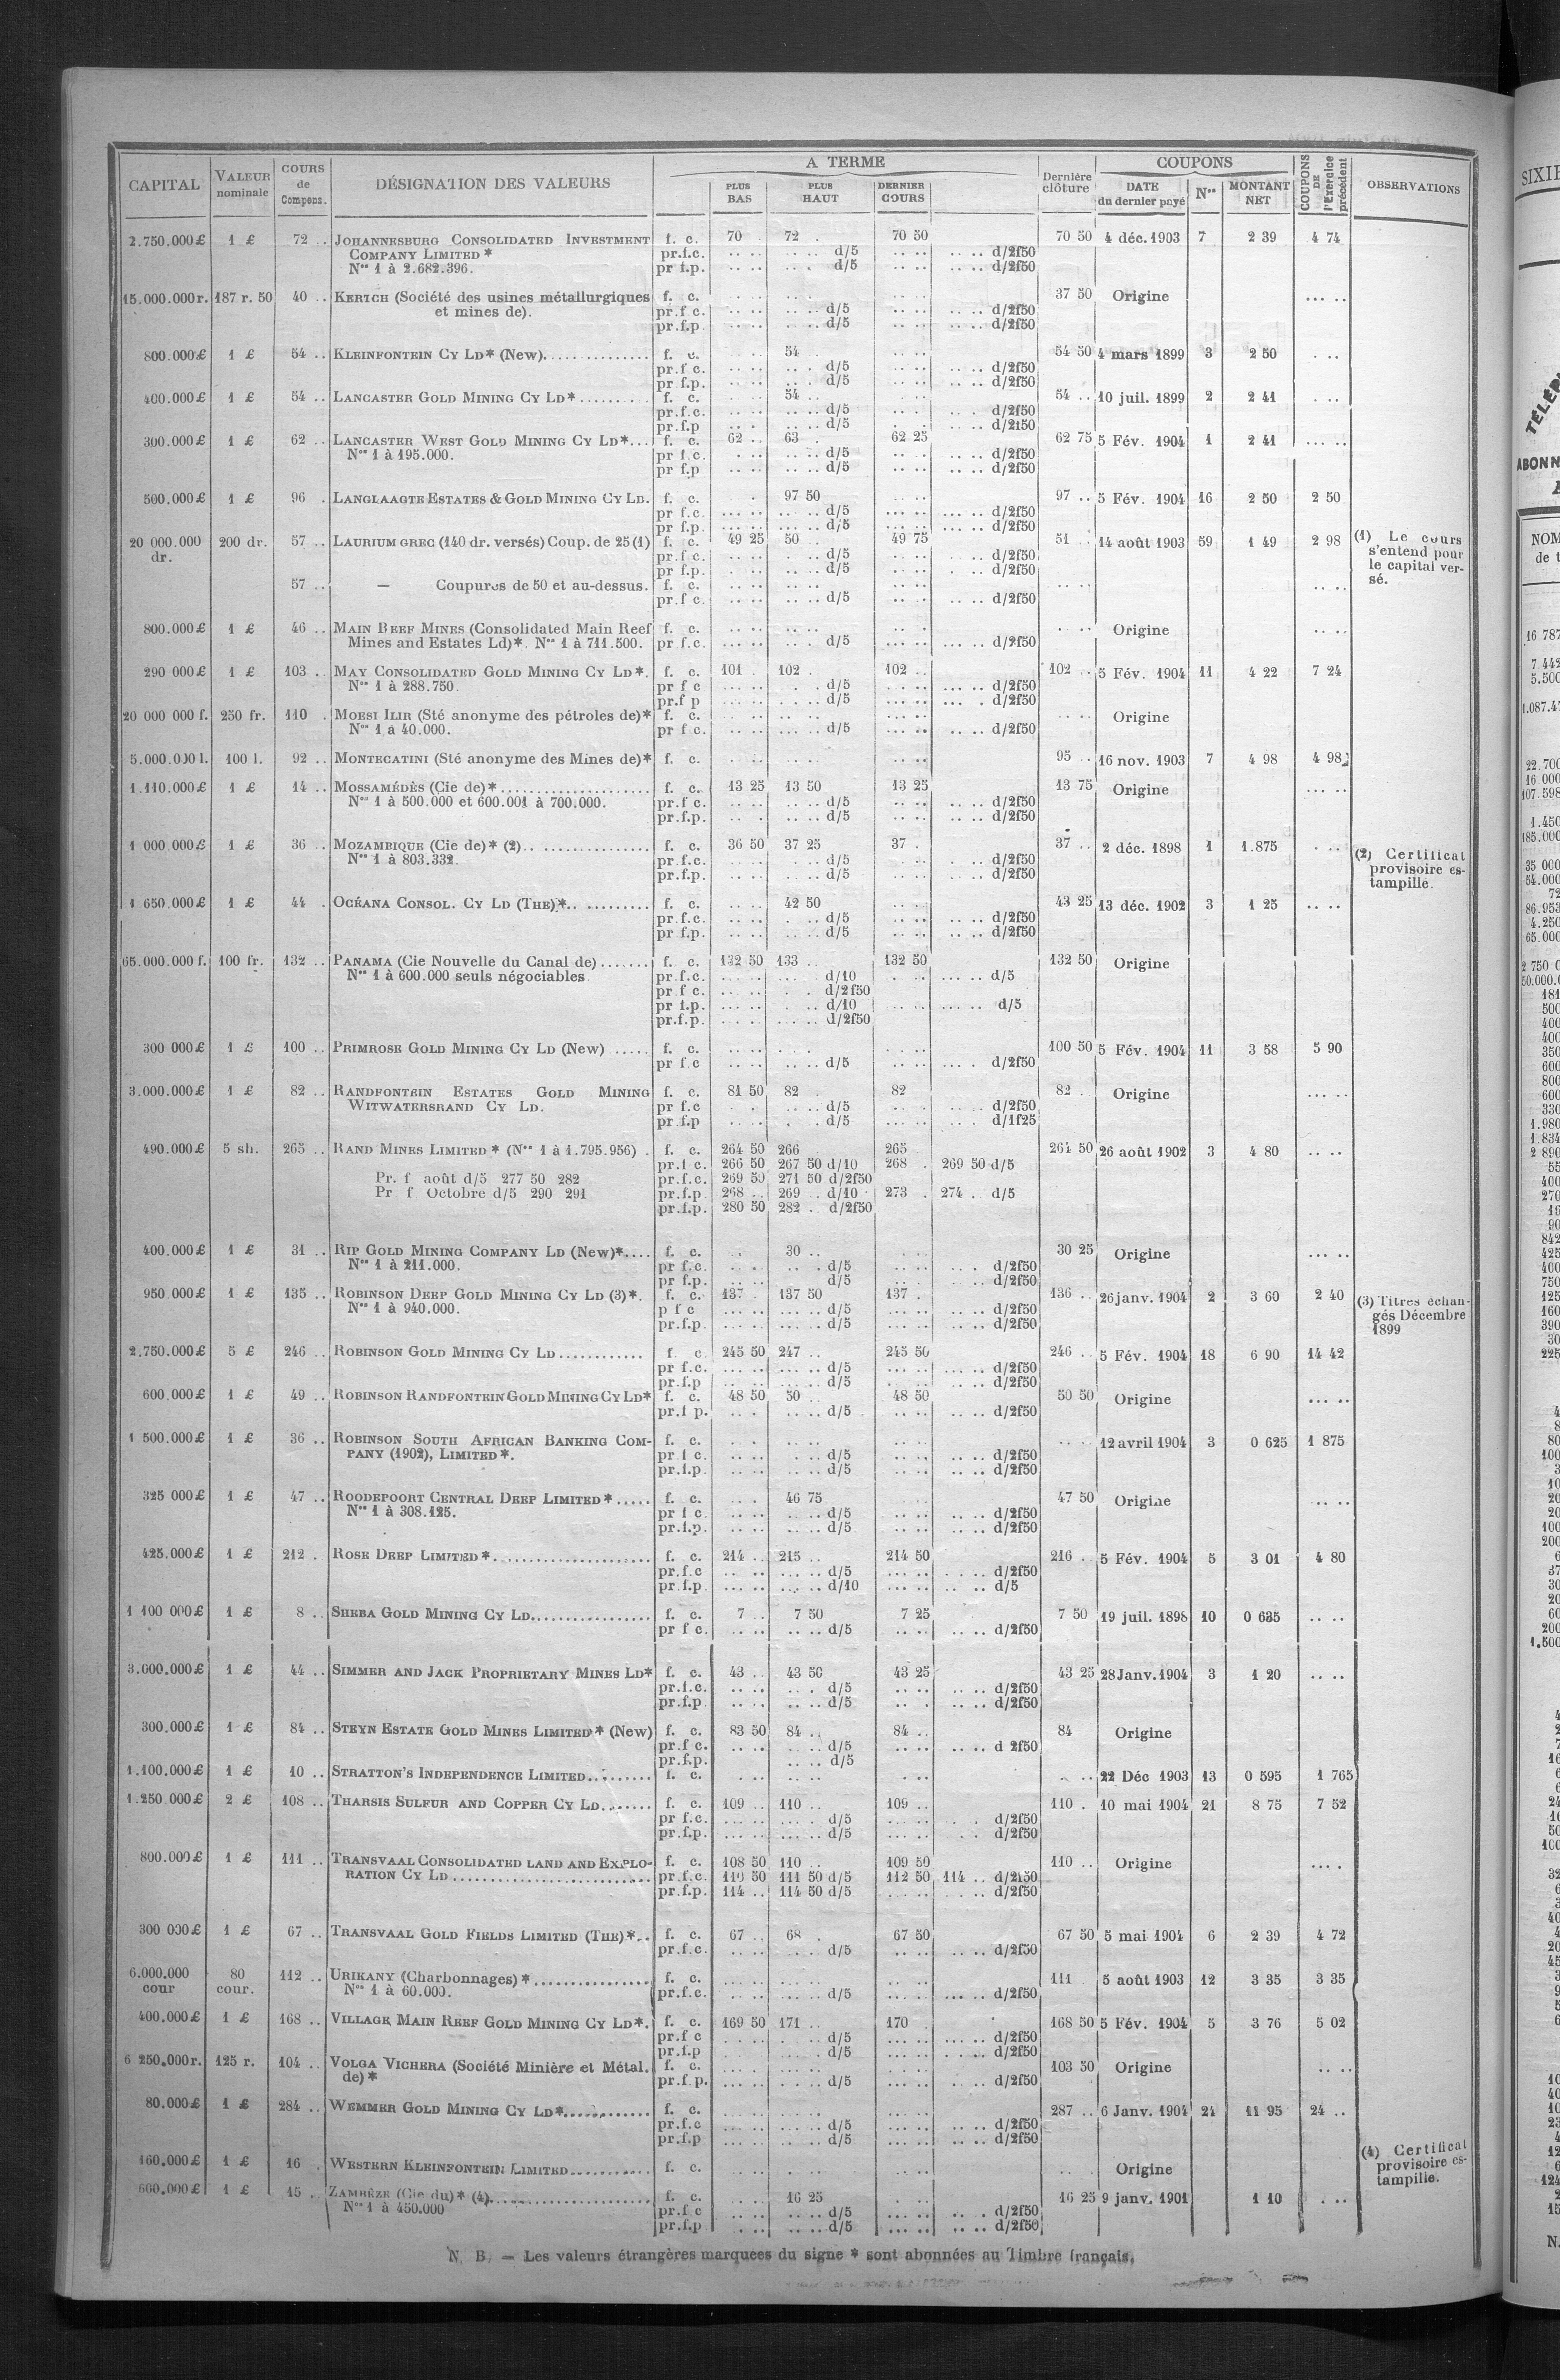 CAPITAL | VALEUR nominale | COURS de Compens. | DÉSIGNATION DES VALEURS | A TERME | PLUS BAS | PLUS HAUT | DERNIER COURS | Dernière clôture | COUPONS | DATE du dernier payé | Nos | MONTANT NET | COUPONS DE l'Exercice précédent | OBSERVATIONS
2.750.000 £ | 1 £ | 72 .. | JOHANNESBURG CONSOLIDATED INVESTMENT | f. c. | 70 | 72 . | 70 50 | 70 50 | 4 déc. 1903 | 7 | 2 39 | 4 74
COMPANY LIMITED * | pr.f.c. | .. .. | .. .. d/5 | .. .. | .. .. d/2f50
Nos 1 à 2.682.396. | pr f.p. | .. .. | .. . d/5 | .. .. | .. .. d/2f50
15.000.000 r. | 187 r. 50 | 40 .. | KERTCH (Société des usines métallurgiques | f. c. | 37 50 | Origine | ... ..
et mines de). | pr.f c. | .. .. | .. .. d/5 | .. .. | .. .. d/2f50
pr.f.p. | .. .. | .. .. d/5 | .. .. | .. .. d/2f50
800.000 £ | 1 £ | 54 .. | KLEINFONTEIN CY LD* (New) | f. c. | 54 . | 54 50 | 4 mars 1899 | 3 | 2 50 | . ..
pr.f c. | .. .. | .. . d/5 | .. .. | .. .. d/2f50
pr f.p. | .. .. | .. . d/5 | .. .. | .. .. d/2f50
400.000 £ | 1 £ | 54 .. | LANCASTER GOLD MINING CY LD* | f. c. | 54 .. | 54 .. | 10 juil. 1899 | 2 | 2 41 | . ..
pr.f.c. | .. .. | .. .. d/5 | .. .. | .. .. d/2f50
pr.f.p | .. .. | .. .. d/5 | .. .. | .. .. d/2f50
300.000 £ | 1 £ | 62 .. | LANCASTER WEST GOLD MINING CY LD* | f. c. | 62 .. | 63 . | 62 25 | 62 75 | 5 Fév. 1904 | 1 | 2 41 | ... ..
Nos 1 à 195.000. | pr f.c. | . .. | .. .. d/5 | .. .. | .. .. d/2f50
pr f.p | .. .. | .. .. d/5 | .. .. | .. .. d/2f50
500.000 £ | 1 £ | 96 . | LANGLAAGTE ESTATES & GOLD MINING CY LD. | f. c. | 97 50 | 97 .. | 5 Fév. 1904 | 16 | 2 50 | 2 50
pr f.c. | ... .. | ... .. d/5 | ... .. | ... .. d/2f50
pr f.p. | ... .. | ... .. d/5 | ... .. | ... .. d/2f50
20 000.000 | 200 dr. | 57 .. | LAURIUM GREC (140 dr. versés) Coup. de 25 (1) | f. c. | 49 25 | 50 .. | 49 75 | 51 .. | 14 août 1903 | 59 | 1 49 | 2 98 | (1) Le cours
dr. | pr.f c. | .. .. | . .. d/5 | .. .. | .. .. d/2f50 | s'entend pour
pr f.p. | .. .. | .. .. d/5 | .. . | . .. d/2f50 | le capital ver-
57 .. | — Coupures de 50 et au-dessus. | f. c. | .. .. | .. .. | .. .. | .. .. | .. .. | sé.
pr.f c. | .. .. | .. .. d/5 | .. .. | .. .. d/2f50
800.000 £ | 1 £ | 46 .. | MAIN REEF MINES (Consolidated Main Reef | f. c. | .. .. | .. .. | .. .. | .. .. | Origine | .. ..
Mines and Estates Ld)*. Nos 1 à 711.500. | pr f.c. | .. .. | .. .. d/5 | .. .. | .. .. d/2f50
290 000 £ | 1 £ | 103 .. | MAY CONSOLIDATED GOLD MINING CY LD*. | f. c. | 101 . | 102 .. | 102 .. | 102 .. | 5 Fév. 1904 | 11 | 4 22 | 7 24
Nos 1 à 288.750. | pr f c | ... .. | . .. d/5 | ... .. | ... .. d/2f50
pr.f p | ... .. | . .. d/5 | ... .. | ... . d/2f50
20 000 000 f. | 250 fr. | 110 . | MOESI ILIR (Sté anonyme des pétroles de)* | f. c. | .. .. | Origine
Nos 1 à 40.000. | pr f c. | .. .. | .. .. d/5 | ... .. | ... .. d/2f50
5.000.000 l. | 100 l. | 92 .. | MONTECATINI (Sté anonyme des Mines de)* | f. c. | 95 .. | 16 nov. 1903 | 7 | 4 98 | 4 98
1.110.000 £ | 1 £ | 14 .. | MOSSAMÉDÈS (Cie de)* | f. c. | 13 25 | 13 50 | 13 25 | 13 75 | Origine | ... ..
Nos 1 à 500.000 et 600.001 à 700.000. | pr.f c. | .. .. | .. .. d/5 | .. .. | .. .. d/2f50
pr.f.p. | .. . | .. .. d/5 | .. .. | .. .. d/2f50
1 000.000 £ | 1 £ | 36 .. | MOZAMBIQUE (Cie de)* (2) | f. c. | 36 50 | 37 25 | 37 . | 37 .. | 2 déc. 1898 | 1 | 1.875 | . .. | (2) Certificat
Nos 1 à 803.332. | pr.f.c. | .. .. | .. .. d/5 | .. .. | . .. d/2f50 | provisoire es-
pr.f.p. | .. .. | .. .. d/5 | .. .. | .. .. d/2f50 | tampillé.
1 650.000 £ | 1 £ | 44 . | OCÉANA CONSOL. CY LD (THE)* | f. c. | 42 50 | 43 25 | 13 déc. 1902 | 3 | 1 25 | .. ..
pr.f.c. | .. .. | . .. d/5 | .. .. | .. .. d/2f50
pr f.p. | .. .. | .. .. d/5 | .. .. | .. .. d/2f50
65.000.000 f. | 100 fr. | 132 .. | PANAMA (Cie Nouvelle du Canal de) | f. c. | 132 50 | 133 .. | 132 50 | 132 50 | Origine
Nos 1 à 600.000 seuls négociables. | pr.f.c. | ... .. | d/10 | . .. | ... .. d/5
pr f c. | ... .. | . . d/2f50
pr f.p. | ... .. | . .. d/10 | ... .. | ... .. d/5
pr.f.p. | ... .. | ... .. d/2f50
300 000 £ | 1 £ | 100 .. | PRIMROSE GOLD MINING CY LD (New) | f. c. | 100 50 | 5 Fév. 1904 | 11 | 3 58 | 5 90
pr f.c | .. .. | ... .. d/5 | ... .. | . .. d/2f50
3.000.000 £ | 1 £ | 82 .. | RANDFONTEIN ESTATES GOLD MINING | f. c. | 81 50 | 82 . | 82 | 82 . | Origine | ... ..
WITWATERSRAND CY LD. | pr f.c | . . | .. .. d/5 | .. . | .. .. d/2f50
pr f.p | .. .. | .. . d/5 | .. .. | .. .. d/1f25
490.000 £ | 5 sh. | 265 .. | RAND MINES LIMITED * (Nos 1 à 1.795.956) . | f. c. | 264 50 | 266 | 265 | 264 50 | 26 août 1902 | 3 | 4 80 | .. ..
pr.f c. | 266 50 | 267 50 d/10 | 268 . | 269 50 d/5
Pr. f août d/5 277 50 282 | pr.f.c. | 269 50 | 271 50 d/2f50
Pr f Octobre d/5 290 291 | pr.f.p | 268 .. | 269 .. d/10 | 273 . | 274 . d/5
pr.f.p. | 280 50 | 282 .. d/2f50
400.000 £ | 1 £ | 31 .. | RIP GOLD MINING COMPANY LD (New)* | f. c. | 30 .. | 30 25 | Origine | ... ..
Nos 1 à 211.000. | pr f.c. | .. .. | .. .. d/5 | .. .. | .. . d/2f50
pr f.p. | .. .. | d/5 | .. .. | .. . d/2f50
950.000 £ | 1 £ | 135 .. | ROBINSON DEEP GOLD MINING CY LD (3)*. | f. c. | 137 . | 137 50 | 137 . | 136 .. | 26 janv. 1904 | 2 | 3 60 | 2 40 | (3) Titres échan-
Nos 1 à 940.000. | p f c | ... .. | ... .. d/5 | ... .. | ... .. d/2f50 | gés Décembre
pr.f.p. | ... .. | ... .. d/5 | ... .. | ... .. d/2f50 | 1899
2.750.000 £ | 5 £ | 246 .. | ROBINSON GOLD MINING CY LD | f. c | 245 50 | 247 .. | 245 50 | 246 .. | 5 Fév. 1904 | 18 | 6 90 | 14 42
pr f.c. | ... .. | ... .. d/5 | ... .. | ... .. d/2f50
pr.f.p | ... .. | ... .. d/5 | . .. | ... .. d/2f50
600.000 £ | 1 £ | 49 .. | ROBINSON RANDFONTEIN GOLD MINING CY LD* | f. c. | 48 50 | 50 .. | 48 50 | 50 50 | Origine | ... ..
pr.f p. | .. . | .. .. d/5 | .. .. | .. .. d/2f50
1 500.000 £ | 1 £ | 36 .. | ROBINSON SOUTH AFRICAN BANKING COM- | f. c. | .. .. | 12 avril 1904 | 3 | 0 625 | 1 875
PANY (1902), LIMITED *. | pr f c. | .. .. | .. .. d/5 | .. .. | .. .. d/2f50
pr.f.p. | .. .. | .. .. d/5 | .. .. | .. .. d/2f50
325 000 £ | 1 £ | 47 .. | ROODEPOORT CENTRAL DEEP LIMITED * | f. c. | 46 75 | 47 50 | Origine | .. ..
Nos 1 à 308.125. | pr f c. | .. .. | .. .. d/5 | .. .. | .. .. d/2f50
pr.f.p. | .. .. | .. .. d/5 | .. .. | .. .. d/2f50
425.000 £ | 1 £ | 212 . | ROSE DEEP LIMITED * | f. c. | 214 .. | 215 .. | 214 50 | 216 . | 5 Fév. 1904 | 5 | 3 01 | 4 80
pr.f.c | .. .. | ... .. d/5 | ... .. | . .. d/2f50
pr.f.p. | ... .. | ... .. d/10 | ... .. | .. .. d/5
1 100 000 £ | 1 £ | 8 .. | SHEBA GOLD MINING CY LD | f. c. | 7 .. | 7 50 | 7 25 | 7 50 | 19 juil. 1898 | 10 | 0 635 | .. ..
pr f c. | .. .. | .. .. d/5 | .. .. | .. .. d/2f50
3.000.000 £ | 1 £ | 44 .. | SIMMER AND JACK PROPRIETARY MINES LD* | f. c. | 43 .. | 43 50 | 43 25 | 43 25 | 28 Janv. 1904 | 3 | 1 20 | .. ..
pr.f.c. | .. .. | .. . d/5 | .. .. | .. .. d/2f50
pr.f.p | .. .. | .. .. d/5 | .. . | .. .. d/2f50
300.000 £ | 1 £ | 84 .. | STEYN ESTATE GOLD MINES LIMITED * (New) | f. c. | 83 50 | 84 .. | 84 .. | 84 | Origine
pr.f c. | .. .. | .. .. d/5 | .. .. | .. .. d 2f50
pr.f.p. | .. .. d/5
1.100.000 £ | 1 £ | 10 .. | STRATTON'S INDEPENDENCE LIMITED | f. c. | 22 Déc 1903 | 13 | 0 595 | 1 765
1.250 000 £ | 2 £ | 108 .. | THARSIS SULFUR AND COPPER CY LD | f. c. | 109 .. | 110 .. | 109 .. | 110 . | 10 mai 1904 | 21 | 8 75 | 7 52
pr f.c. | ... .. | ... .. d/5 | ... .. | . . d/2f50
pr.f.p. | ... .. | ... .. d/5 | ... .. | . . d/2f50
800.000 £ | 1 £ | 111 .. | TRANSVAAL CONSOLIDATED LAND AND EXPLO- | f. c. | 108 50 | 110 .. | 109 50 | 110 .. | Origine | ... .
RATION CY LD | pr.f.c. | 110 50 | 111 50 d/5 | 112 50 | 114 .. d/2f50
pr.f.p. | 114 .. | 114 50 d/5 | . .. | . .. d/2f50
300 000 £ | 1 £ | 67 .. | TRANSVAAL GOLD FIELDS LIMITED (THE)* | f. c. | 67 .. | 68 . | 67 50 | 67 50 | 5 mai 1904 | 6 | 2 39 | 4 72
pr.f.c. | .. .. | .. .. d/5 | .. .. | .. .. d/2f50
6.000.000 | 80 | 112 .. | URIKANY (Charbonnages) * | f. c. | 111 | 5 août 1903 | 12 | 3 35 | 3 35
cour | cour. | Nos 1 à 60.000. | pr.f.c. | ... .. | ... .. d/5 | ... .. | ... .. d/2f50
400.000 £ | 1 £ | 168 .. | VILLAGE MAIN REEF GOLD MINING CY LD*. | f. c. | 169 50 | 171 .. | 170 . | 168 50 | 5 Fév. 1904 | 5 | 3 76 | 5 02
pr.f c | . .. | . .. d/5 | ... .. | ... .. d/2f50
pr.f.p | . .. | .. .. d/5 | ... .. | ... .. d/2f50
6 250.000 r. | 125 r. | 104 .. | VOLGA VICHERA (Société Minière et Métal. | f. c. | 103 50 | Origine | .. ..
de) * | pr.f p. | ... .. | ... .. d/5 | ... .. | .. d/2f50
80.000 £ | 1 £ | 284 .. | WEMMER GOLD MINING CY LD* | f. c. | 287 .. | 6 Janv. 1904 | 24 | 11 95 | 24 ..
pr.f.c | ... .. | ... .. d/5 | ... .. | .. .. d/2f50
pr.f.p | ... .. | ... .. d/5 | ... .. | .. .. d/2f50 | (4) Certificat
160.000 £ | 1 £ | 16 . | WESTERN KLEINFONTEIN LIMITED | f. c. | Origine | provisoire es-
600.000 £ | 1 £ | 15 . | ZAMBÈZE (Cie du)* (4) | f. c. | 16 25 | 16 25 | 9 janv. 1901 | 1 10 | . .. | tampillé.
Nos 1 à 450.000 | pr.f c | .. .. | .. .. d/5 | ... .. | .. .. d/2f50
pr.f.p | .. .. | .. .. d/5 | ... .. | .. .. d/2f50
N. B. — Les valeurs étrangères marquées du signe * sont abonnées au Timbre français.
SIXIE
TÉLÉP
ABONN
A
NOM
de t